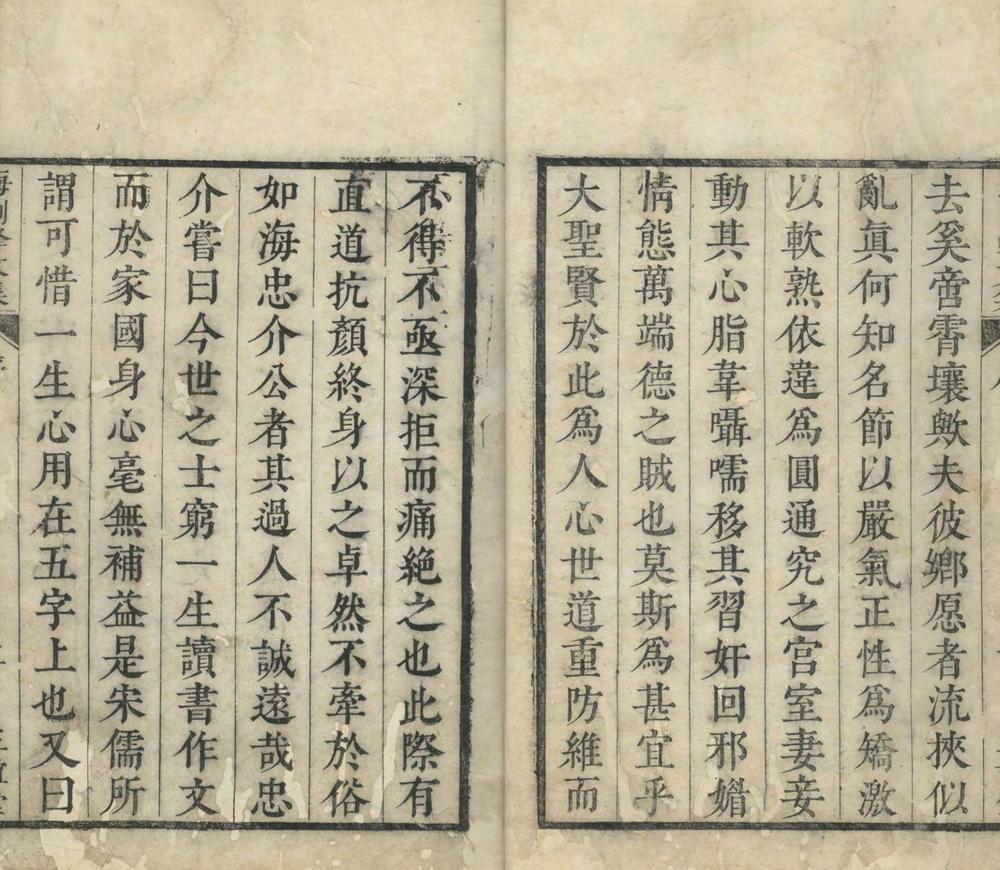 去奚啻霄壤歟夫彼鄉愿者流挾似
亂眞何知名節以嚴氣正性爲矯激
以軟熟依違爲圓通究之宮室妻妾
動其心脂韋囁嚅移其習奸回邪媚
情態萬端德之賊也莫斯爲甚宜乎
大聖賢於此爲人心世道重防維而
不得不亟深拒而痛絶之也此際有
直道抗顏終身以之卓然不牽於俗
如海忠介公者其過人不誠遠哉忠
介嘗曰今世之士窮一生讀書作文
而於家國身心毫無補益是宋儒所
謂可惜一生心用在五字上也又曰